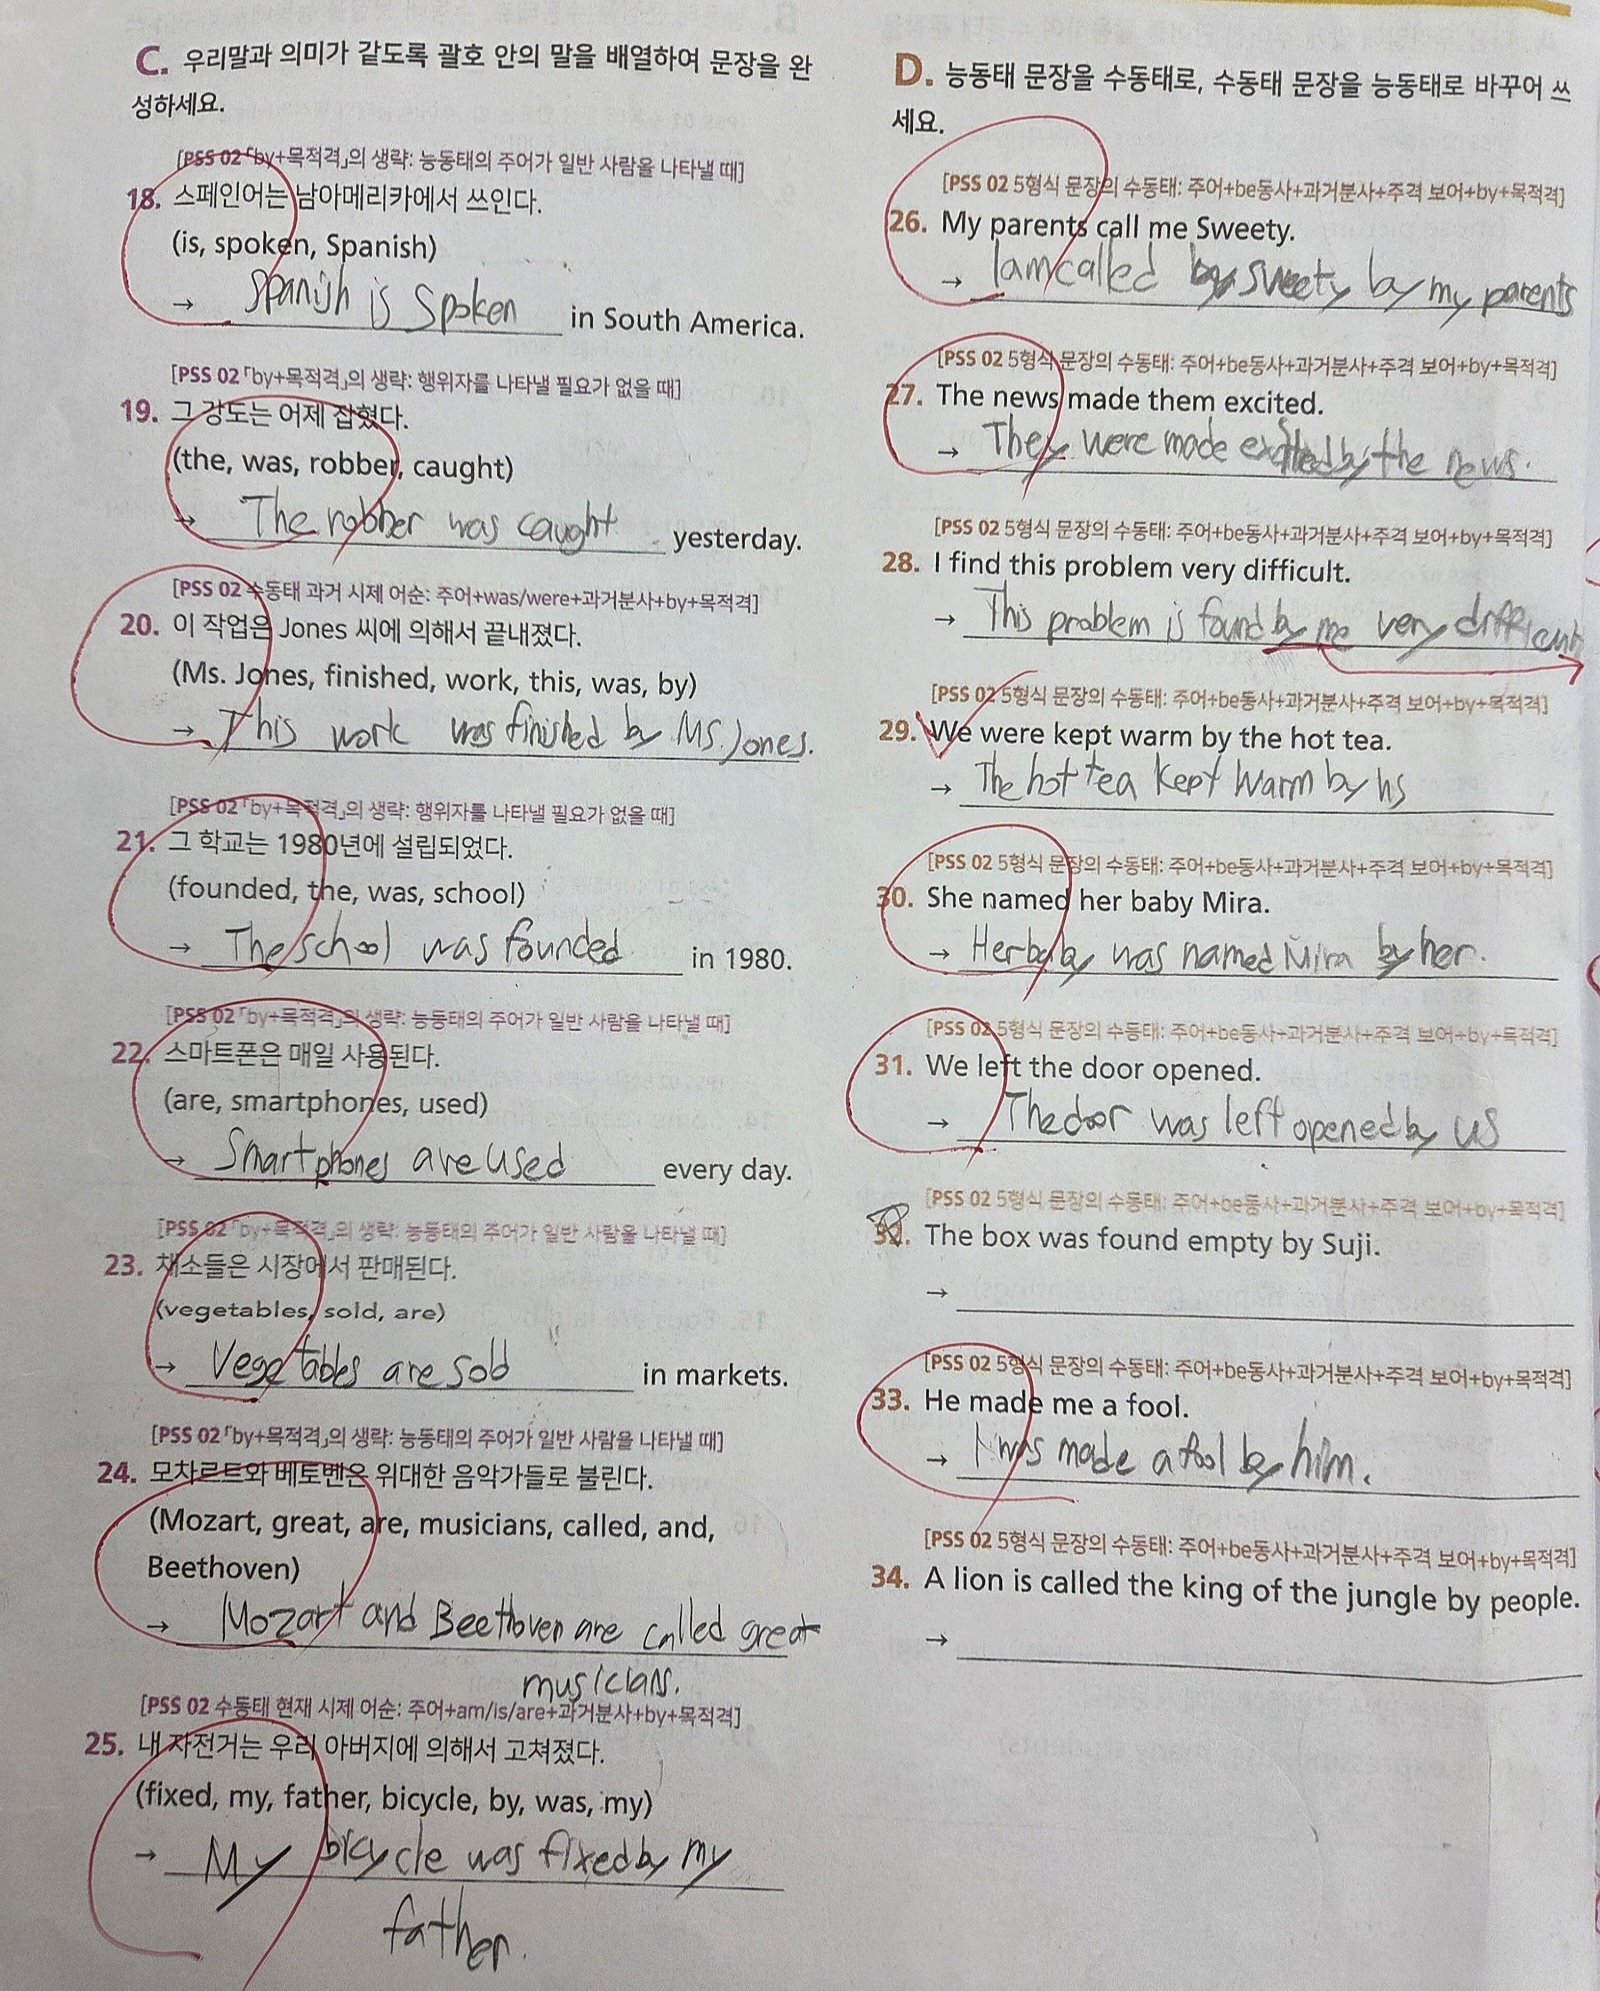 C. 우리말과 의미가 같도록 괄호 안의 말을 배열하여 문장을 완
성하세요.
[PSS 02 「by+목적격」의 생략: 능동태의 주어가 일반 사람을 나타낼 때]
18. 스페인어는 남아메리카에서 쓰인다.
(is, spoken, Spanish)
→ Spanish is Spoken in South America.
[PSS 02 「by+목적격」의 생략: 행위자를 나타낼 필요가 없을 때]
19. 그 강도는 어제 잡혔다.
(the, was, robber, caught)
→ The robber was caught yesterday.
[PSS 02 수동태 과거 시제 어순: 주어+was/were+과거분사+by+목적격]
20. 이 작업은 Jones 씨에 의해서 끝내졌다.
(Ms. Jones, finished, work, this, was, by)
→ This work was finished by Ms. Jones.
[PSS 02 「by+목적격」의 생략: 행위자를 나타낼 필요가 없을 때]
21. 그 학교는 1980년에 설립되었다.
(founded, the, was, school)
→ The school was founded in 1980.
[PSS 02 「by+목적격」의 생략: 능동태의 주어가 일반 사람을 나타낼 때]
22. 스마트폰은 매일 사용된다.
(are, smartphones, used)
→ Smartphones are used every day.
[PSS 02 「by+목적격」의 생략: 능동태의 주어가 일반 사람을 나타낼 때]
23. 채소들은 시장에서 판매된다.
(vegetables, sold, are)
→ Vegetables are sold in markets.
[PSS 02 「by+목적격」의 생략: 능동태의 주어가 일반 사람을 나타낼 때]
24. 모차르트와 베토벤은 위대한 음악가들로 불린다.
(Mozart, great, are, musicians, called, and,
Beethoven)
→ Mozart and Beethoven are called great
musicians.
[PSS 02 수동태 현재 시제 어순: 주어+am/is/are+과거분사+by+목적격]
25. 내 자전거는 우리 아버지에 의해서 고쳐졌다.
(fixed, my, father, bicycle, by, was, my)
→ My bicycle was fixed by my
father.
D. 능동태 문장을 수동태로, 수동태 문장을 능동태로 바꾸어 쓰
세요.
[PSS 02 5형식 문장의 수동태: 주어+be동사+과거분사+주격 보어+by+목적격]
26. My parents call me Sweety.
→ I am called sweety by my parents
[PSS 02 5형식 문장의 수동태: 주어+be동사+과거분사+주격 보어+by+목적격]
27. The news made them excited.
→ They were made excited by the news.
[PSS 02 5형식 문장의 수동태: 주어+be동사+과거분사+주격 보어+by+목적격]
28. I find this problem very difficult.
→ This problem is found by me very difficult
[PSS 02 5형식 문장의 수동태: 주어+be동사+과거분사+주격 보어+by+목적격]
29. We were kept warm by the hot tea.
→ The hot tea kept warm by us
[PSS 02 5형식 문장의 수동태: 주어+be동사+과거분사+주격 보어+by+목적격]
30. She named her baby Mira.
→ Her baby was named Mira by her.
[PSS 02 5형식 문장의 수동태: 주어+be동사+과거분사+주격 보어+by+목적격]
31. We left the door opened.
→ The door was left opened by us
[PSS 02 5형식 문장의 수동태: 주어+be동사+과거분사+주격 보어+by+목적격]
32. The box was found empty by Suji.
→
[PSS 02 5형식 문장의 수동태: 주어+be동사+과거분사+주격 보어+by+목적격]
33. He made me a fool.
→ I was made a fool by him.
[PSS 02 5형식 문장의 수동태: 주어+be동사+과거분사+주격 보어+by+목적격]
34. A lion is called the king of the jungle by people.
→